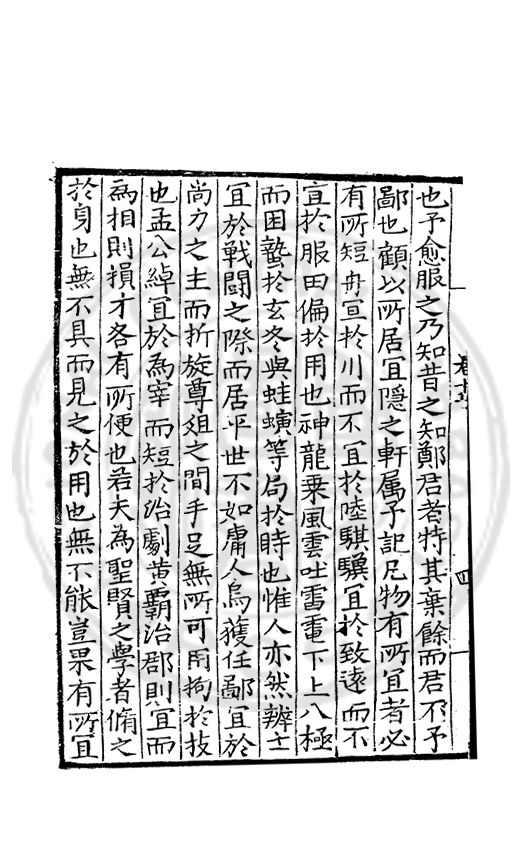 也予愈服之乃知昔之知鄭君者特其棄餘而君不予
鄙也顧以所居宜隱之軒属予記凡物有所宜者必
有所短舟宜於川而不宜於陸騏驥宜於致遠而不
宜於服田偏於用也神龍乗風雲吐雷電下上八極
而困蟄於玄冬與蛙螾等局於時也惟人亦然辨士
宜於戰鬪之際而居平世不如庸人烏獲任鄙宜於
尚力之主而折旋尊俎之間手足無所可用拘於技
也孟公綽宜於為宰而短於治劇黄霸治郡則宜而
為相則損才各有所便也若夫為聖賢之學者脩之
於身也無不具而見之於用也無不能豈果有所宜
四